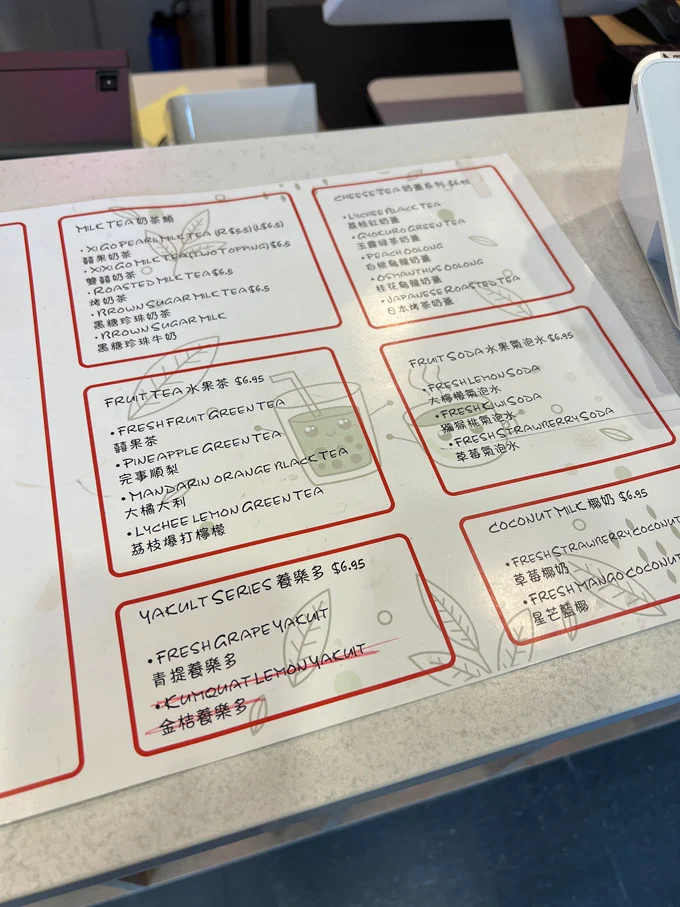 MILK TEA 奶茶類
• XIGO PEARL MILK TEA (R $5.5) (L$6.5)
囍果奶茶
• XIXIGO MILK TEA (TWO TOPPING) $6.5
雙囍奶茶
• ROASTED MILK TEA $6.5
烤奶茶
• BROWN SUGAR MILK TEA $6.5
黑糖珍珠奶茶
• BROWN SUGAR MILK
黑糖珍珠牛奶
CHEESE TEA 奶蓋系列 $6.95
• LYCHEE BLACK TEA
荔枝紅奶蓋
• GYOKURO GREEN TEA
玉露綠茶奶蓋
• PEACH OOLONG
白桃烏龍奶蓋
• OSMANTHUS OOLONG
桂花烏龍奶蓋
• JAPANESE ROASTED TEA
日本烤茶奶蓋
FRUIT TEA 水果茶 $6.95
• FRESH FRUIT GREEN TEA
囍果茶
• PINEAPPLE GREEN TEA
完事順梨
• MANDARIN ORANGE BLACK TEA
大橘大利
• LYCHEE LEMON GREEN TEA
荔枝爆打檸檬
FRUIT SODA 水果氣泡水 $6.95
• FRESH LEMON SODA
大檸檬氣泡水
• FRESH KIWI SODA
獼猴桃氣泡水
• FRESH STRAWBERRY SODA
草莓氣泡水
YAKULT SERIES 養樂多 $6.95
• FRESH GRAPE YAKULT
青提養樂多
• KUMQUAT LEMON YAKULT
金桔養樂多
COCONUT MILK 椰奶 $6.95
• FRESH STRAWBERRY COCONUT
草莓椰奶
• FRESH MANGO COCONUT
星芒藍椰